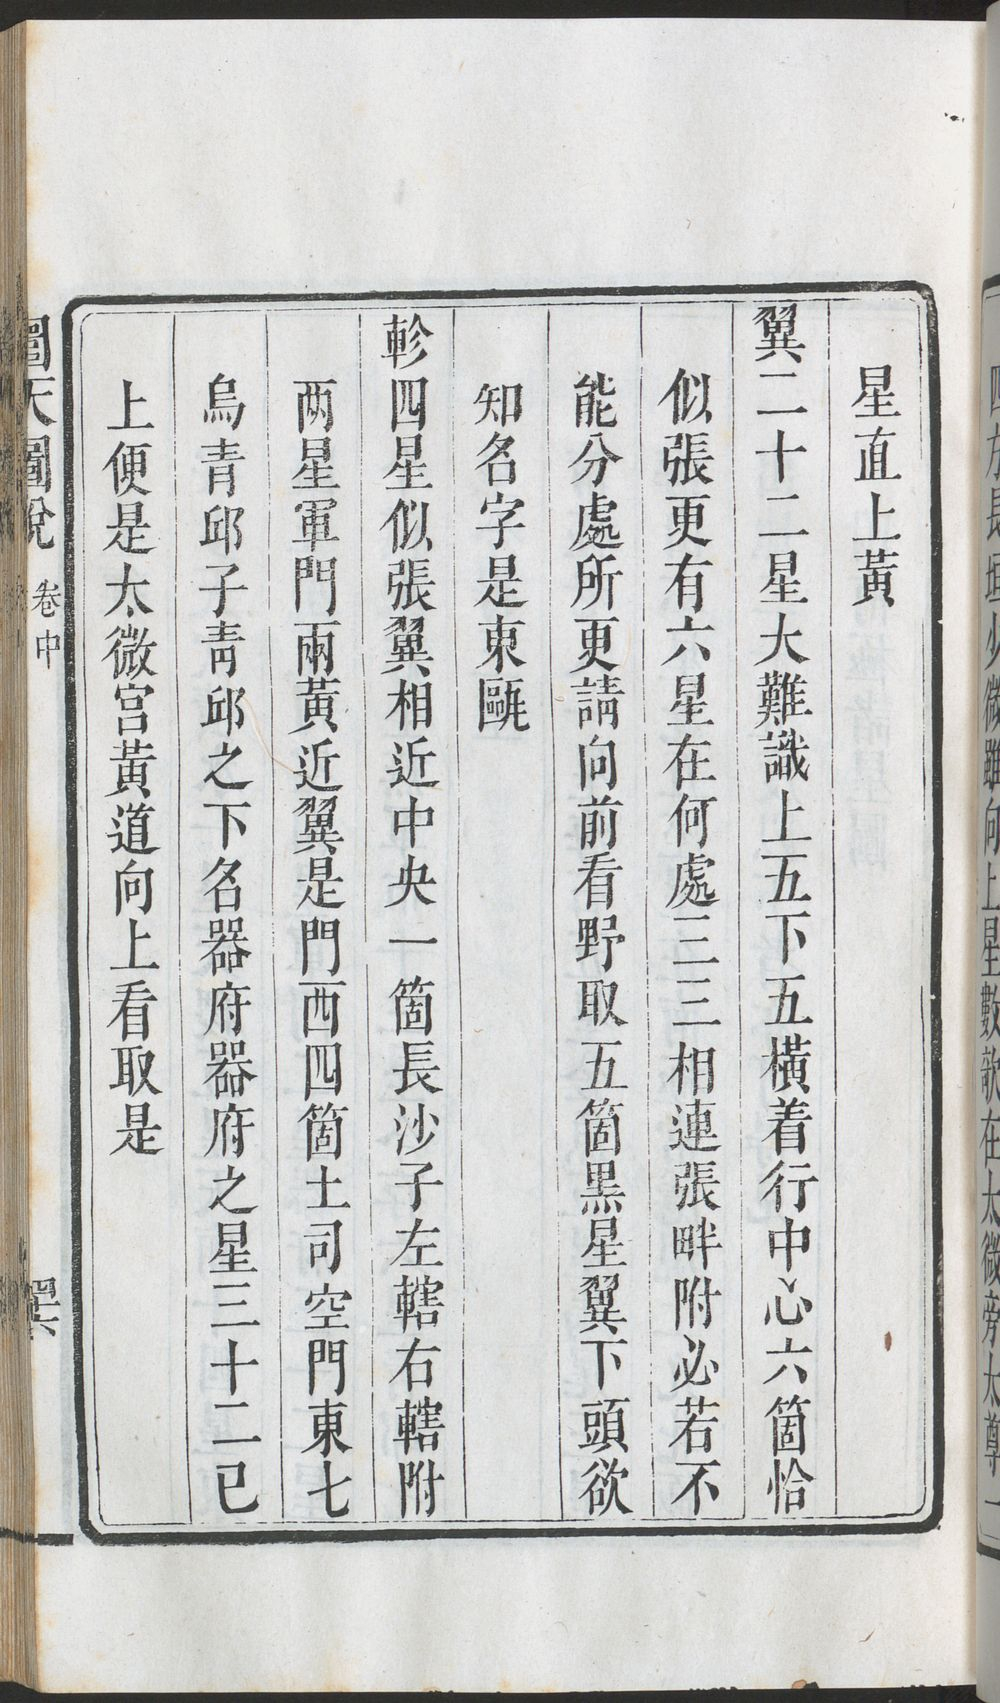 星直上黃
翼二十二星大難識上五下五橫着行中心六箇恰
似張更有六星在何處三三相連張畔附必若不
能分處所更請向前看野取五箇黑星翼下頭欲
知名字是東甌
軫四星似張翼相近中央一箇長沙子左轄右轄附
两星軍門兩黃近翼是門西四箇土司空門東七
烏青邱子青邱之下名器府器府之星三十二已
上便是太微宫黃道向上看取是
圜天圖說
卷中